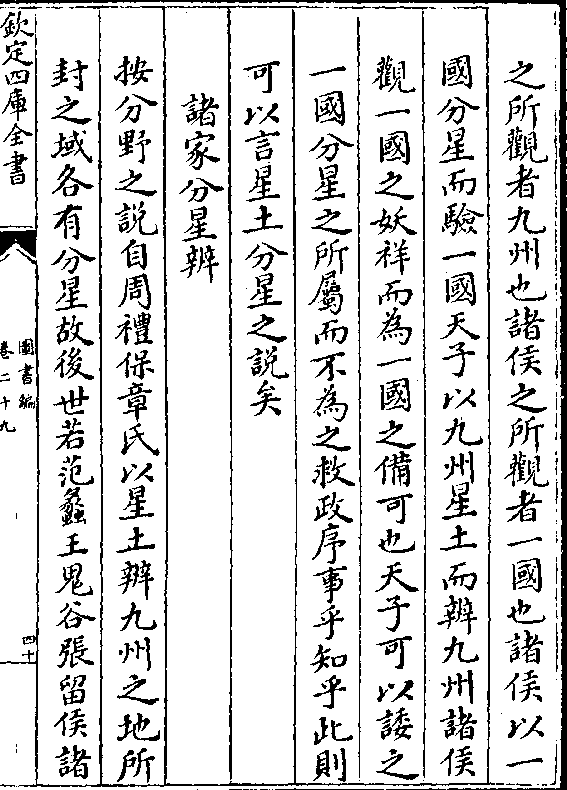 之所觀者九州也諸侯之所觀者一國也諸侯以一
國分星而驗一國天子以九州星土而辨九州諸侯
觀一國之妖祥而為一國之備可也天子可以諉之
一國分星之所屬而不為之救政序事乎知乎此則
可以言星土分星之說矣
諸家分星辨
按分野之說自周禮保章氏以星土辨九州之地所
封之域各有分星故後世若范蠡王鬼谷張留侯諸
欽定四庫全書
圖書編
卷二十九
四十